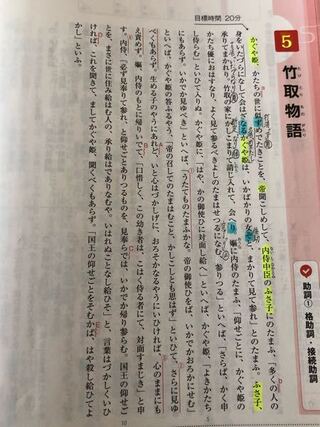 助詞① 格助詞・接続助詞
5
竹取物語
目標時間 20分
かぐや姫、かたちの世に似ずめでたきことを、帝聞こしめして、内侍中臣のふさ子にのたまふ、「多くの人の
身をいたづらになして会はざなるかぐや姫は、いかばかりの女ぞと、まかりて見て参れ」とのたまふ。ふさ子、
承りてまかれり。竹取の家にかしこまりて請じ入れて、会へり。嫗に内侍ののたまふ、「仰せごとに、かぐや姫の
かたち優におはすなり。よく見て参るべきよしのたまはせつるになむ、参りつる」といへば、「さらば、かく申
し侍らむ」といひて入りぬ。かぐや姫に、「はや、かの御使ひに対面し給へ」といへば、かぐや姫、「よきかたち
にもあらず。いかでか見ゆべき」といへば、「うたてものたまふかな。帝の御使ひをば、いかでかおろかにせむ」
といへば、かぐや姫の答ふるやう、「帝の召してのたまはむこと、かしこしとも思はず」といひて、さらに見ゆ
べくもあらず。生める子のやうにあれど、いと心はづかしげに、おろそかなるやうにいひければ、心のままにも
え責めず。嫗、内侍のもとに帰りいでて、「口惜しく、この幼き者は、こはく侍る者にて、対面すまじき」と申
す。内侍、「必ず見奉りて参れ、と仰せごとありつるものを、見奉らでは、いかでか帰り参らむ。国王の仰せご
とを、まさに世に住み給はむ人の、承り給はでありなむや。いはれぬことなし給ひそ」と、言葉はづかしくいひ
ければ、これを聞きて、ましてかぐや姫、聞くべくもあらず。「国王の仰せごとをそむかば、はや殺し給ひてよ
かし」といふ。
10